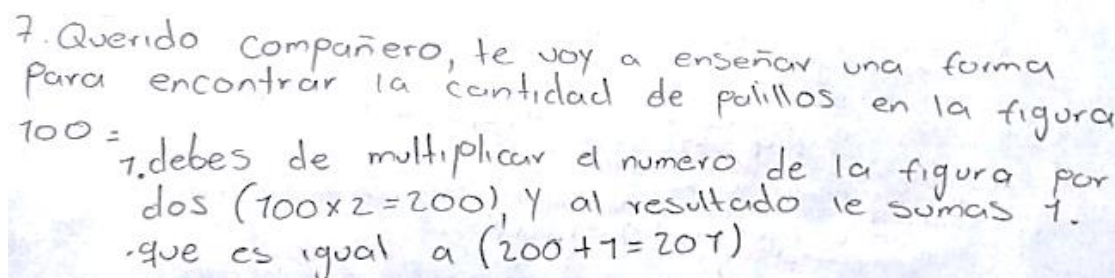 7. Querido compañero, te voy a enseñar una forma
para encontrar la cantidad de palillos en la figura
100 =
1. debes de multiplicar el numero de la figura por
dos (100x2=200), y al resultado le sumas 1.
que es igual a (200+1=201)